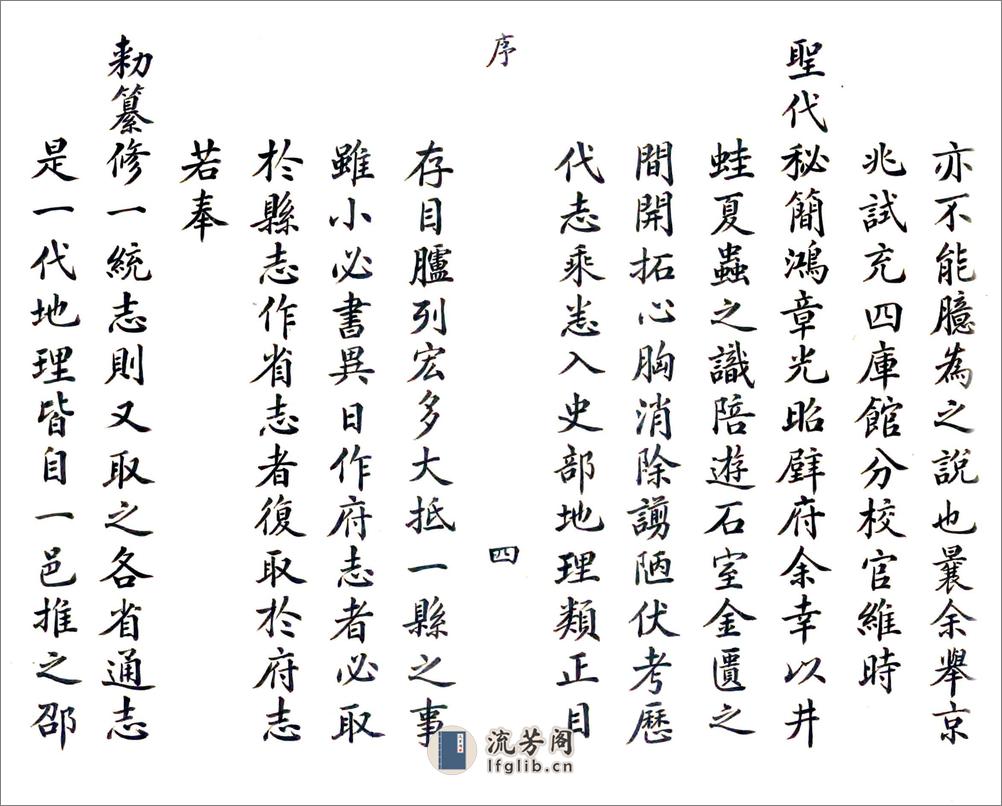 亦不能臆為之說也曩余舉京
兆試充四庫館分校官維時
聖代秘簡鴻章光昭壁府余幸以井
蛙夏蟲之識陪遊石室金匱之
間開拓心胸消除謭陋伏考歷
代志乘悉入史部地理類正目
序
四
存目臚列宏多大抵一縣之事
雖小必書異日作府志者必取
於縣志作省志者復取於府志
若奉
勅纂修一統志則又取之各省通志
是一代地理皆自一邑推之邵
流芳阁
lfglib.cn